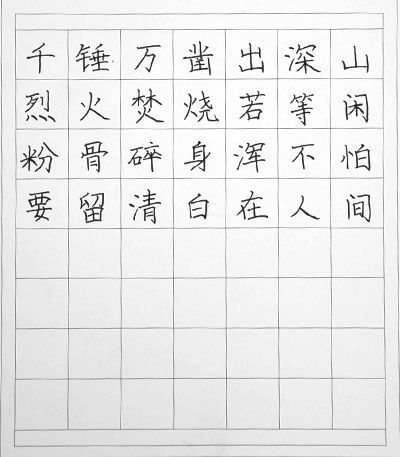 千锤万凿出深山
烈火焚烧若等闲
粉骨碎身浑不怕
要留清白在人间